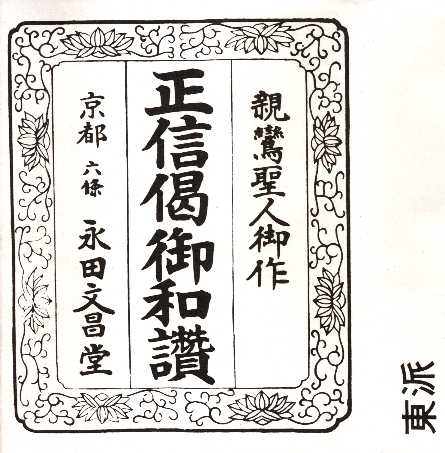 親鸞聖人御作
正信偈御和讃
京都 六條 永田文昌堂
東派